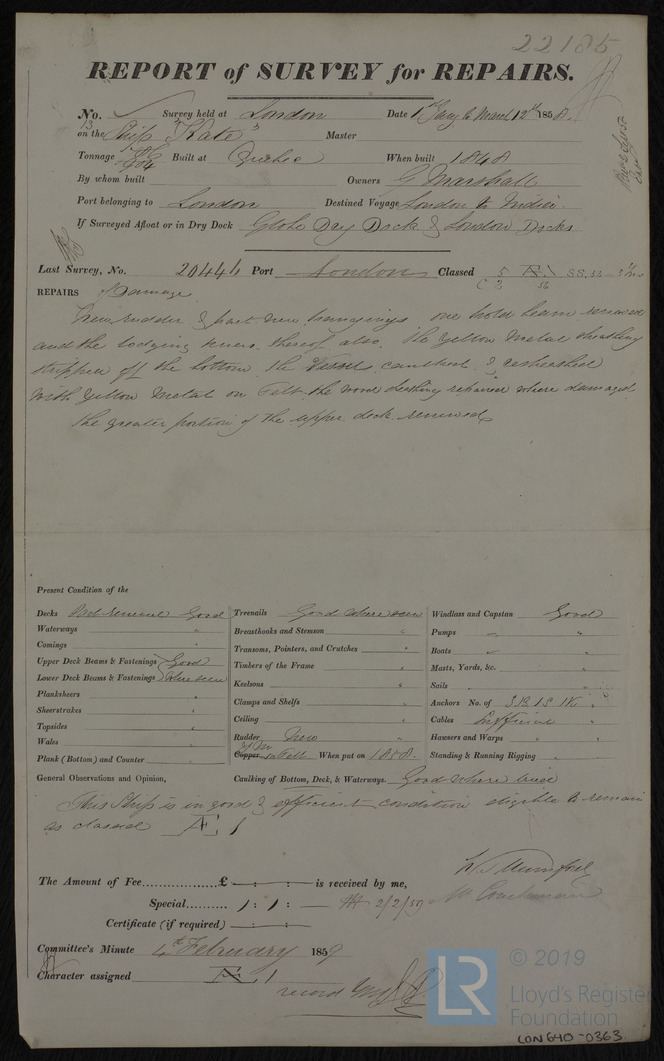 22185
REPORT of SURVEY for REPAIRS.
No. 13 Survey held at London Date 1st Jany to March 12th 1858.
on the Ship "Kate" Master
Tonnage 804 Built at Quebec When built 1848
By whom built Owners G Marshall
Port belonging to London Destined Voyage London to India
If Surveyed Afloat or in Dry Dock Globe Dry Dock & London Docks
Last Survey, No. 20446 Port London Classed 5 Æ 1
REPAIRS Damage
New rudder & part new hangings one hold beam renewed
and the lodging knees thereof also. The Yellow Metal sheathing
stripped off the bottom the Vessel caulked & resheathed
with Yellow Metal on Felt the wood sheathing repaired where damaged
the greater portion of the upper deck renewed
Present Condition of the
Decks Part renewed Good
Waterways "
Comings "
Upper Deck Beams & Fastenings Good
Lower Deck Beams & Fastenings where seen
Planksheers "
Sheerstrakes "
Topsides "
Wales "
Plank (Bottom) and Counter "
Treenails Good where seen
Breasthooks and Stemson "
Transoms, Pointers, and Crutches "
Timbers of the Frame "
Keelsons "
Clamps and Shelfs "
Ceiling "
Rudder New
Copper Y M on Felt When put on 1858
Caulking of Bottom, Deck, & Waterways. Good where tried
Windlass and Capstan Good
Pumps "
Boats "
Masts, Yards, &c. "
Sails "
Anchors No. of 3B. 1S 1K "
Cables Sufficient "
Hawsers and Warps "
Standing & Running Rigging "
General Observations and Opinion,
This Ship is in good & efficient condition eligible to remain
as classed Æ 1
W. Mumford
The Amount of Fee £ : : is received by me,
Special 1 : 1 : 2/2/59
Certificate (if required) : :
Committee's Minute 4th February 1859
Character assigned Æ 1
record
© 2019
LR
Lloyd's Register
Foundation
LON640-0363